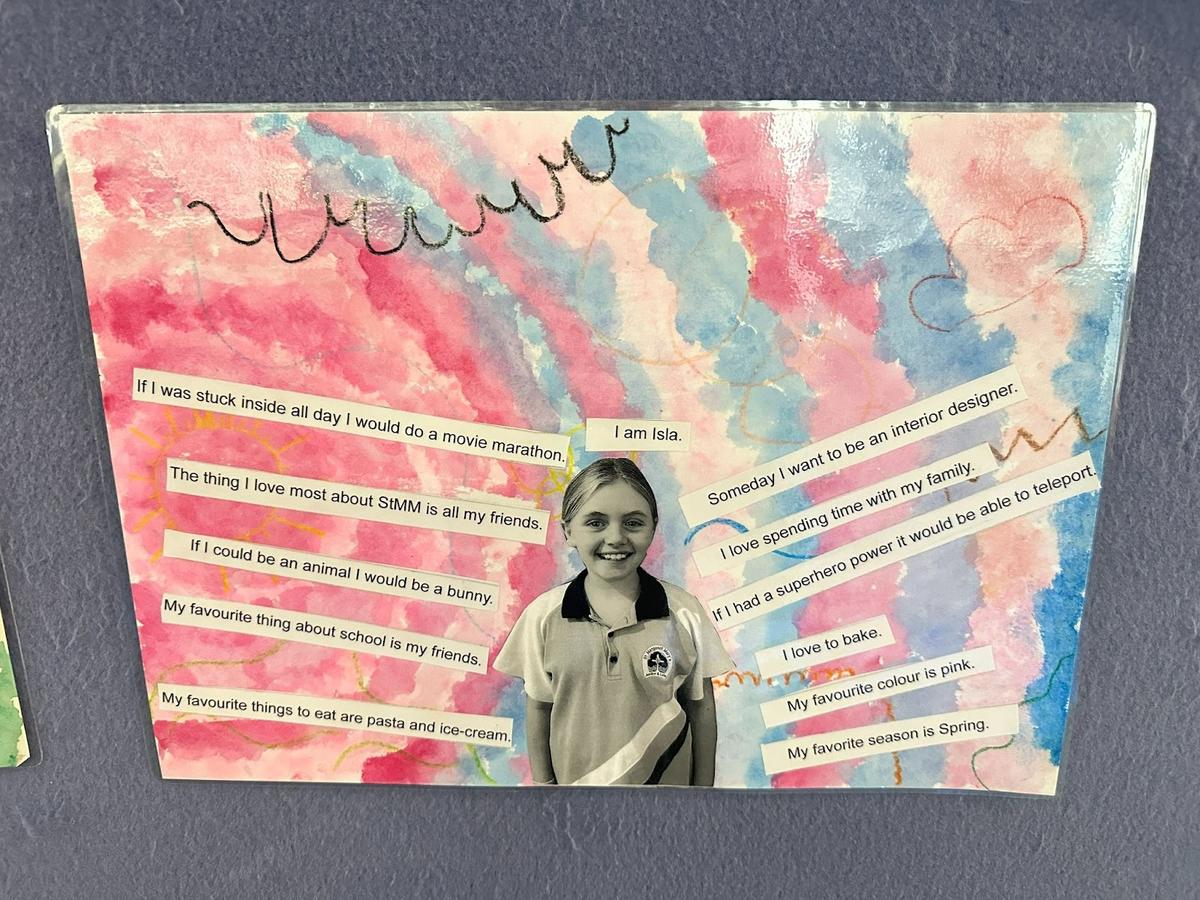 I am Isla.
If I was stuck inside all day I would do a movie marathon.
The thing I love most about StMM is all my friends.
If I could be an animal I would be a bunny.
My favourite thing about school is my friends.
My favourite things to eat are pasta and ice-cream.
Someday I want to be an interior designer.
I love spending time with my family.
If I had a superhero power it would be able to teleport.
I love to bake.
My favourite colour is pink.
My favorite season is Spring.